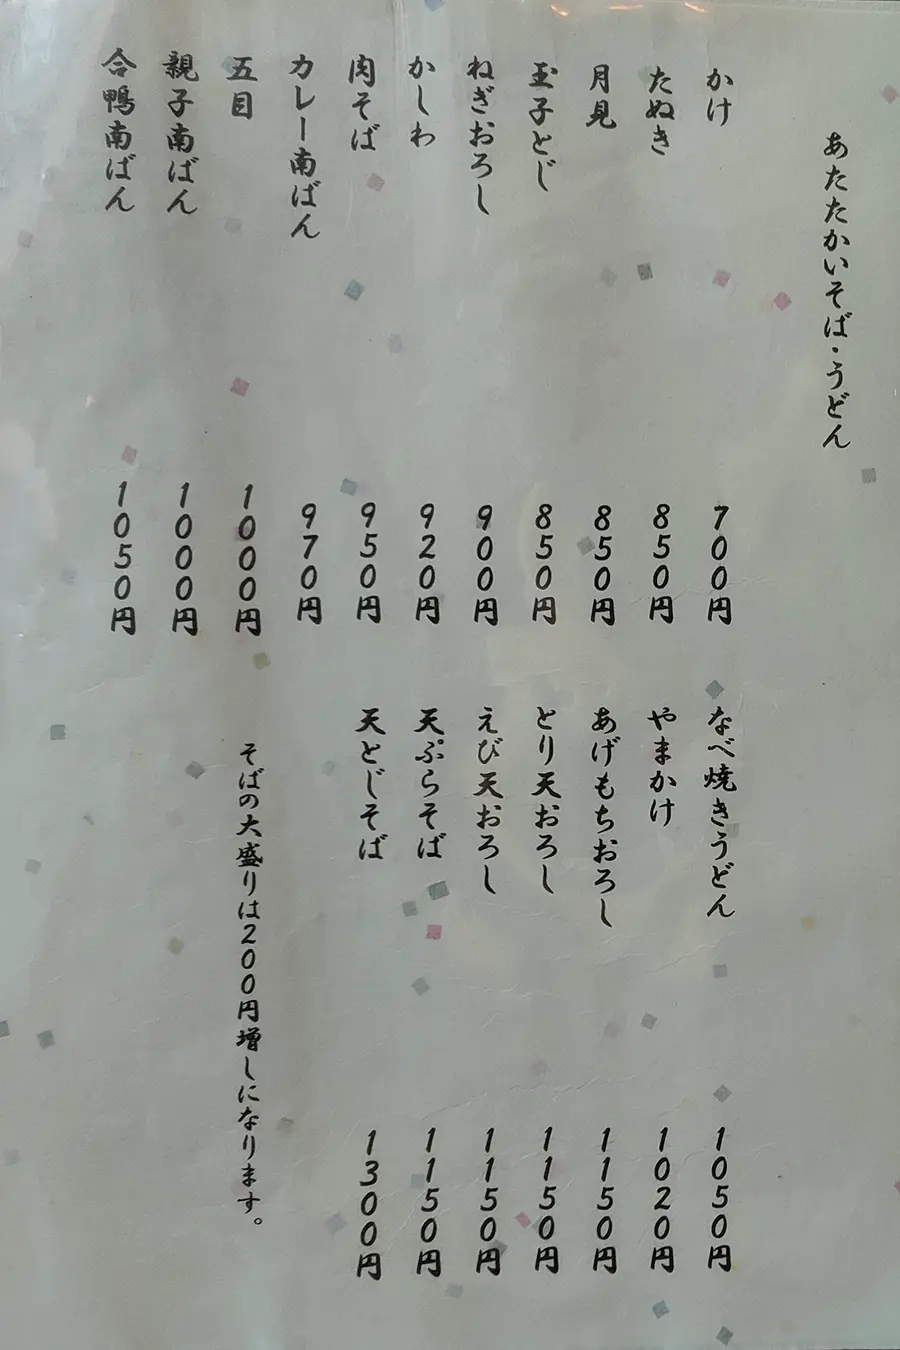 あたたかいそば・うどん
かけ 700円
たぬき 850円
月見 850円
玉子とじ 850円
ねぎおろし 900円
かしわ 920円
肉そば 950円
カレー南ばん 970円
五目 1000円
親子南ばん 1000円
合鴨南ばん 1050円
なべ焼きうどん 1050円
やまかけ 1020円
あげもちおろし 1150円
とり天おろし 1150円
えび天おろし 1150円
天ぷらそば 1150円
天とじそば 1300円
そばの大盛りは200円増しになります。